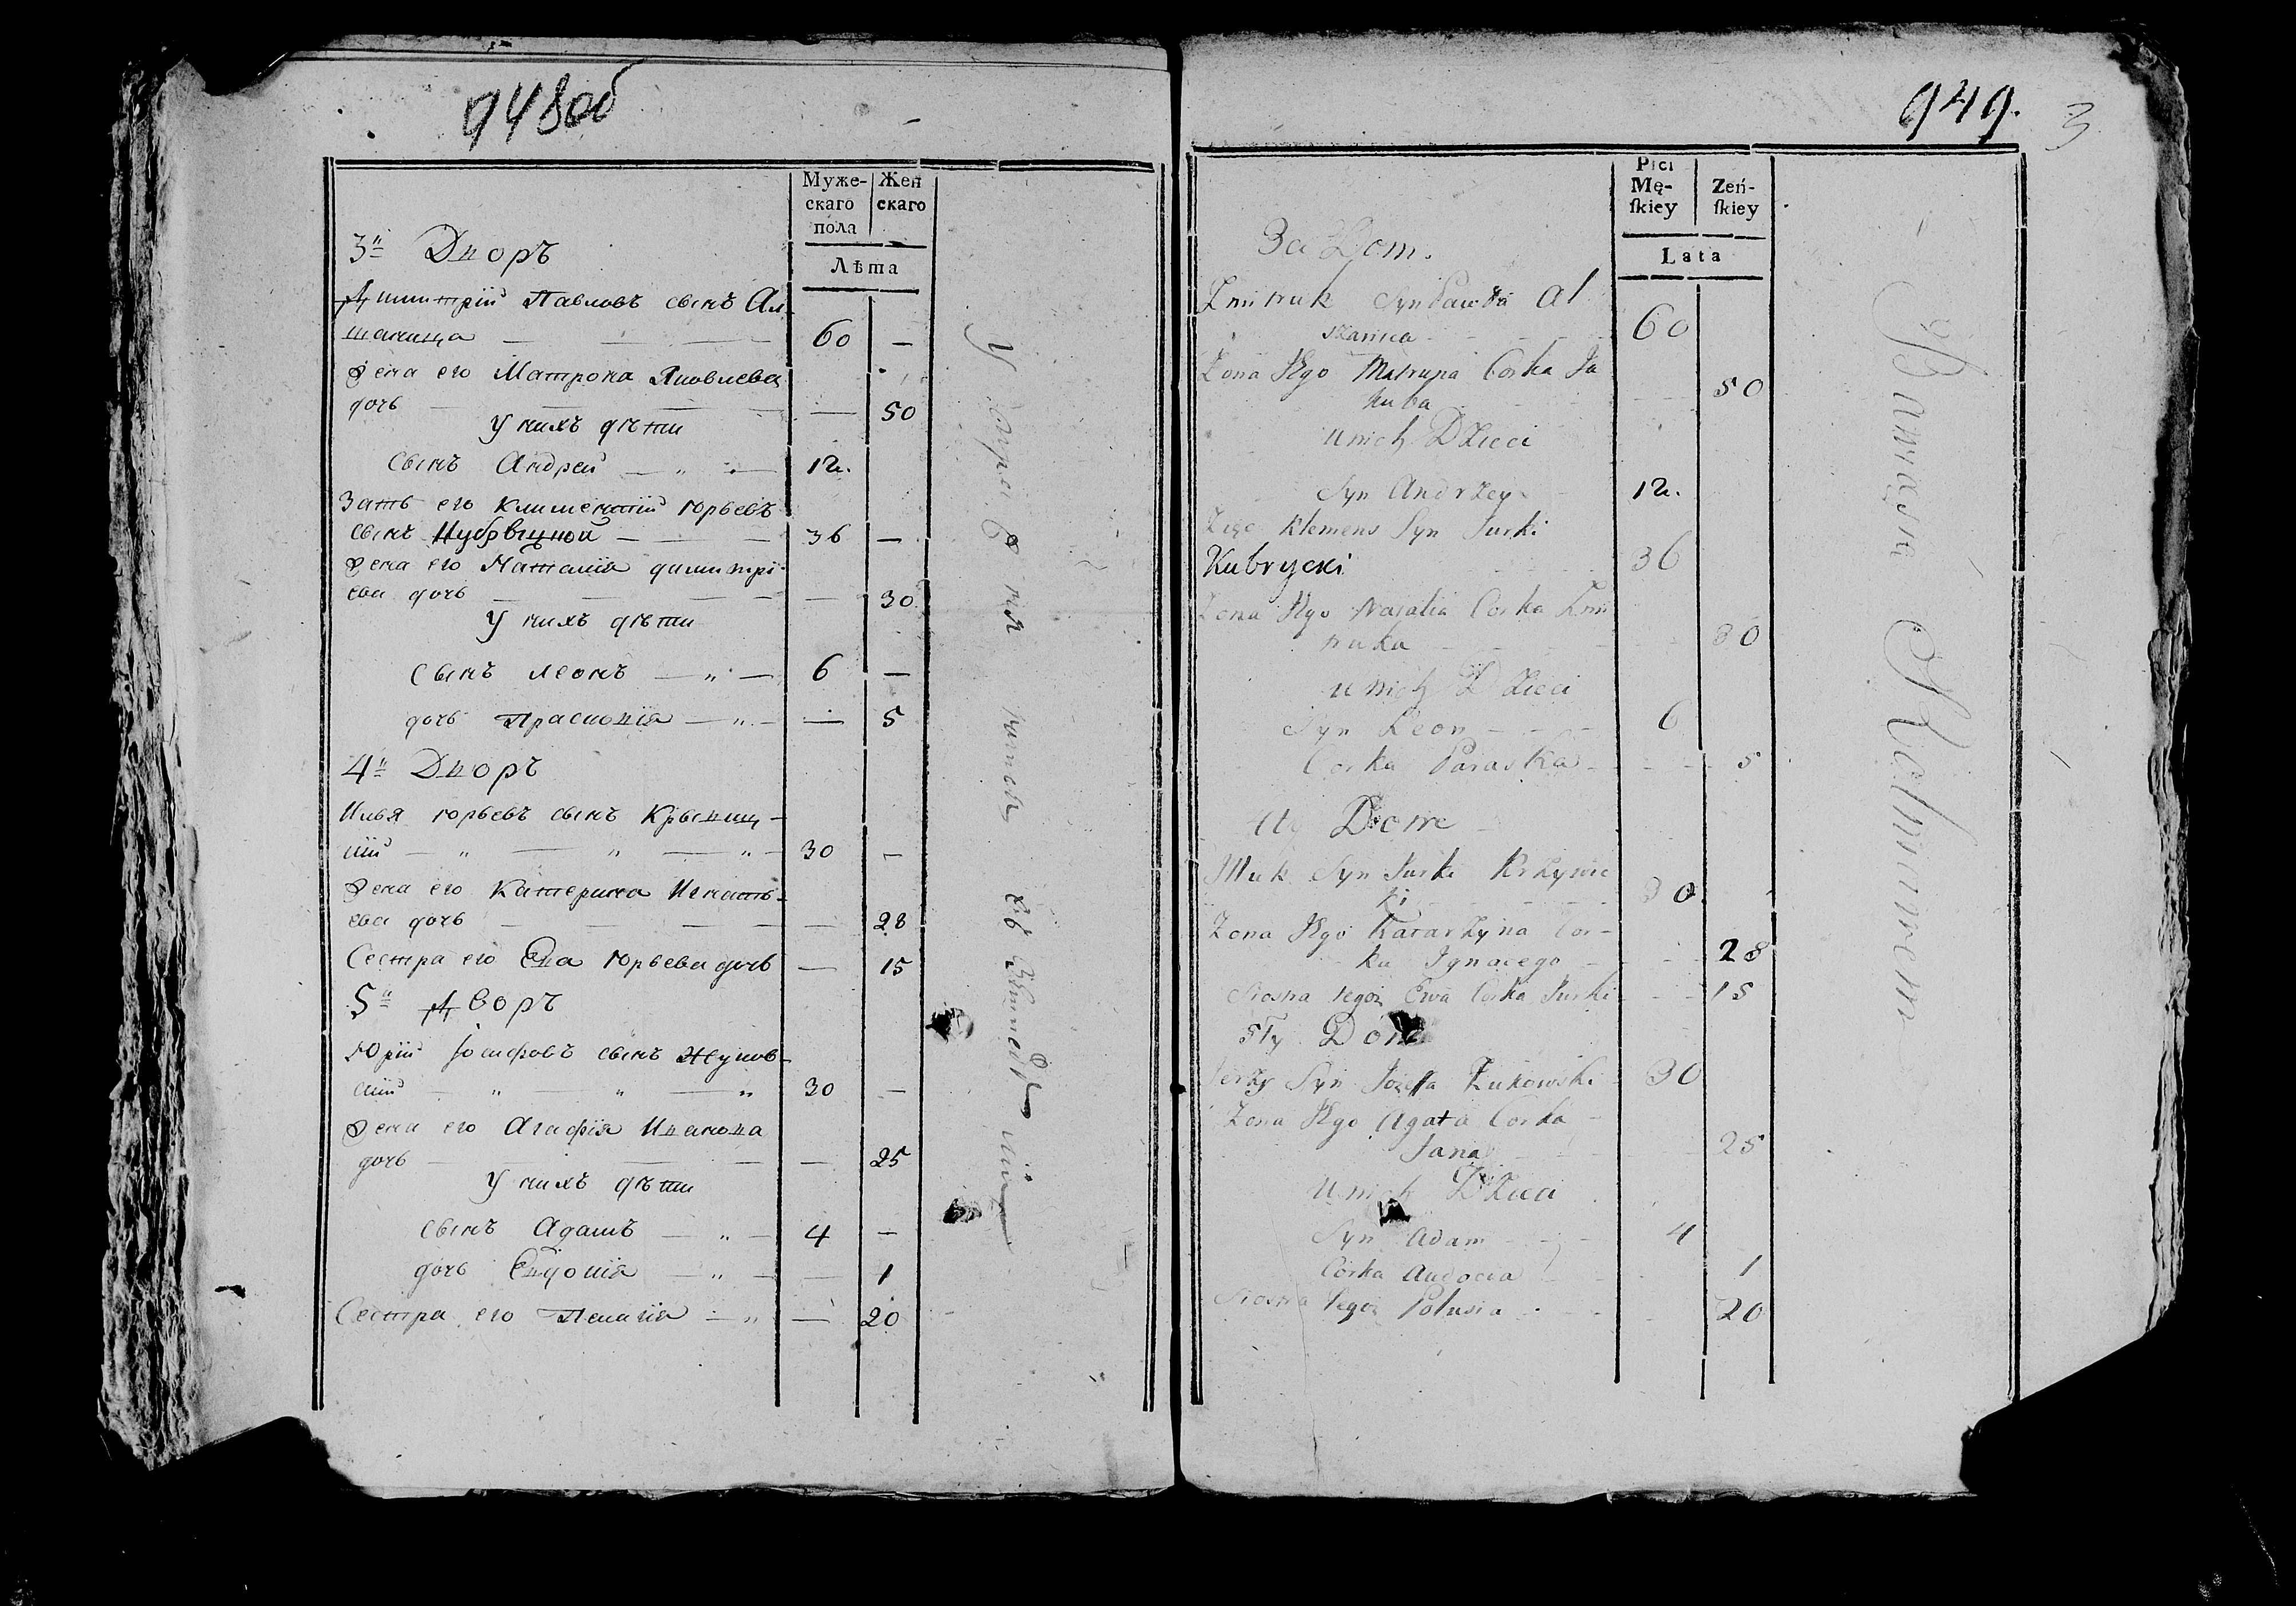 948об
Муже-
скаго
пола
Жен
скаго
Лѣта
3й Дворъ
Димитрій Павловъ сынъ Ал-
шаница 60 —
жена его Матрона Яковлева
дочь — 50
У нихъ дѣти
сынъ Андрей 12.
Зять его Климентій Юрьевъ
сынъ 36 —
жена его Наталія Димитрі-
ева дочь — 30
У нихъ дѣти
сынъ Леонъ 6 —
дочь Прасковія — 5
4й Дворъ
Илья Юрьевъ сынъ Крывиц-
кій 30 —
жена его Катерина Игнать-
ева дочь — 28
Сестра его Ева Юрьева дочь — 15
5й Дворъ
Юрій Іосифовъ сынъ Жуков-
скій 30 —
жена его Агафія Иванова
дочь — 25
У нихъ дѣти
сынъ Адамъ 4 —
дочь Евдокія — 1
Сестра его Пелагія — 20
949.
3
Płci
Mę-
ſkiey
Zeń-
ſkiey
Lata
3ci Dom.
Zmitruk Syn Pawła Al
szanica 60
Zona Jego Matruna Corka Ja
kuba 50
U nich Dzieci
Syn Andrzey 12.
Zięc Klemens Syn Jurki
Kubrycki 36
Zona Jego Natalia Corka Zmi
truka 30
U nich Dzieci
Syn Leon 6
Corka Paraska 5
4ty Dom
Iluk Syn Jurki Krzywic
ki 30
Zona Jego Katarzyna Cor-
ka Ignacego 28
Siostra tegoż Ewa Corka Jurki 15
5ty Dom
Jerzy Syn Jozefa Zukowski 30
Zona Jego Agata Corka
Jana 25
U nich Dzieci
Syn Adam 4
Corka Audocia 1
Siostra tegoż Polusia 20